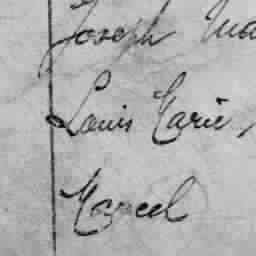 Joseph Ma
Louis Marie,
Marcel